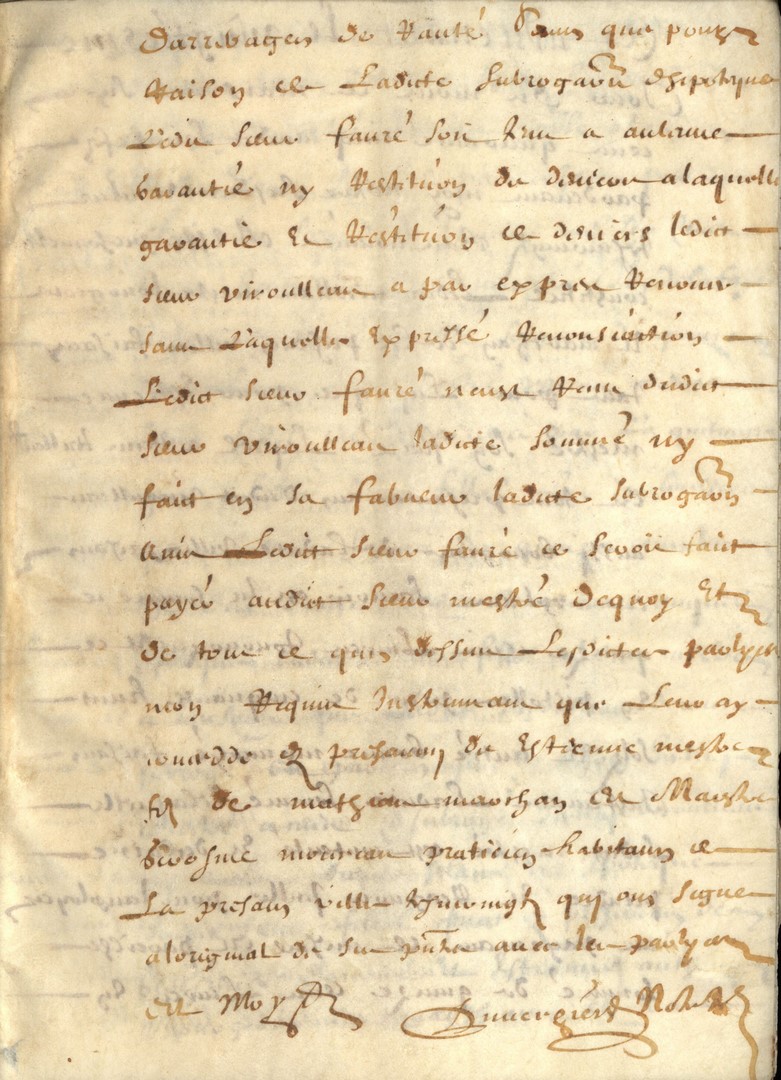 Darrerages de Rante Sans que pour
Raison de Ladicte Subrogaon & hipotque
Ledit Sieur fauré Soit tenu a aulcune
Garantie ny Restitution de deniers a laquelle
garantie et Restitution de deniers ledict
Sieur viroulleau a par expres Renoncé
Sans Laquelle Expresse Renonsiation
Ledict Sieur fauré neust Randu dudict
Sieur viroulleau ladicte Somme ny
faict en sa fabueur ladicte Subrogaon
Ains Ledict Sieur fauré ce Seroit faict
payer audict Sieur mestre dequoy Et
de tout ce que dessus Lesdictes partyes
mon Requis Instrumant que Leur ay
concedde En presance de Estienne mestre
filz de mathieu marchan et Maistre
Geosme moureau praticien habitans de
La presant ville thesmoingtz quy ont Signe
a loriginal de Ses pntes avec les partyes
et Moy Duvergier Notere